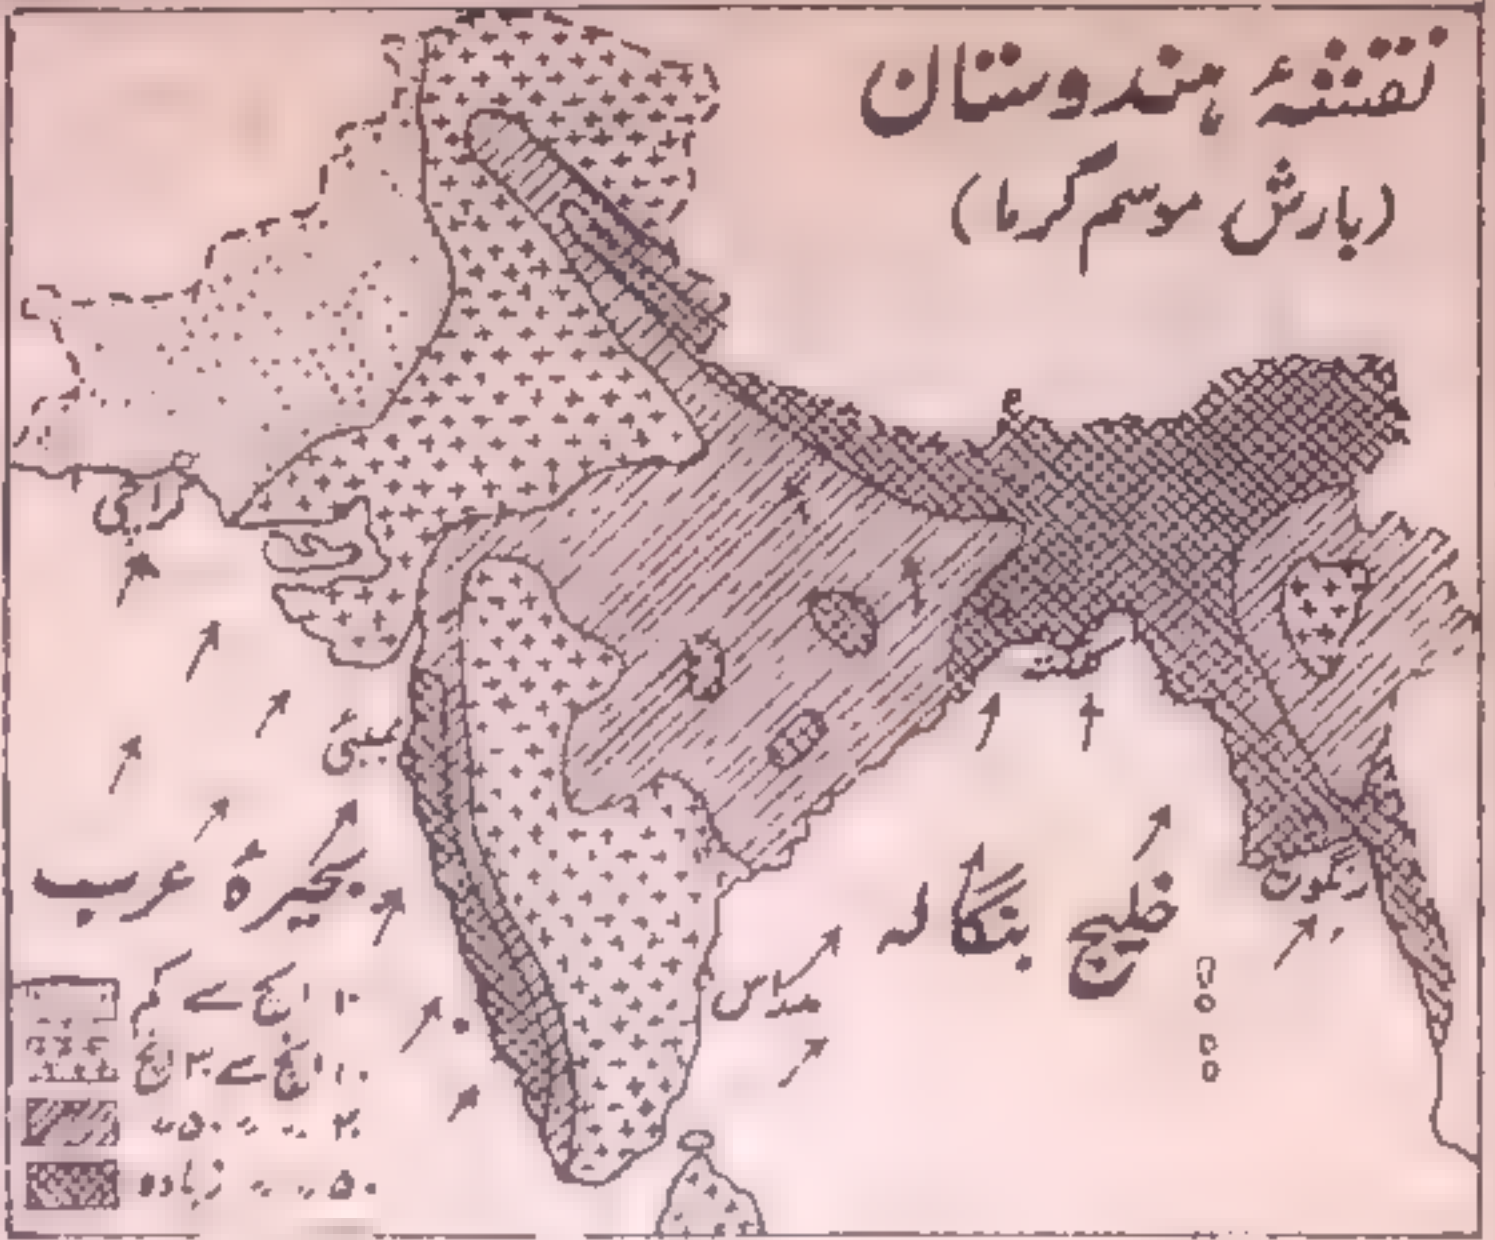 نقشۂ ہندوستان
(بارش موسم گرما)
کراچی
بمبئی
کلکتہ
رنگون
مدراس
بحیرۂ عرب
خلیج بنگالہ
۱۰ انچ سے کم
۱۰ انچ سے ۳۰ انچ
۳۰ " " ۵۰ "
۵۰ " " زیادہ